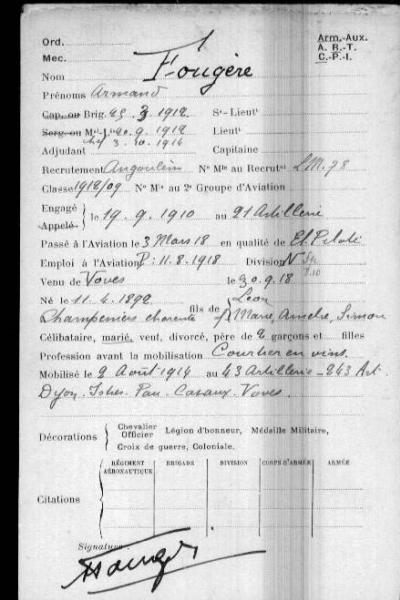 Ord.
Arm.-Aux.
Mec.
A. R.-T.
C.-P.-I.
Nom Fougère
Prénoms Armand
Cap. ou Brig. 25. 3. 1912 St-Lieutt
Serg. ou Mal-L 20. 9. 1912 Lieutt
Adjudant 3. 10. 1914 Capitaine
Recrutement Angoulêm No Mle au Recrutt L.M. 78
Classe 1912/09 No Mle au 2e Groupe d'Aviation
Engagé
Appelé
le 19. 9. 1910 au 21 Artillerie
Passé à l'Aviation le 3 Mars 18 en qualité de El. Pilote
Emploi à l'Aviation P: 11. 8. 1918 Division N
Venu de Voves le 30. 9. 18
Né le 11. 4. 1892 fils de Léon
Champeniers charente Marie, Simon
Célibataire, marié, veuf, divorcé, père de 2 garçons et filles
Profession avant la mobilisation Courtier en vins
Mobilisé le 2 Août 1914 au 43 Artillerie - 243 Art.
Dijon. Istres. Pau. Cazaux. Voves.
Décorations
Chevalier
Officier
Légion d'honneur, Médaille Militaire,
Croix de guerre, Coloniale.
RÉGIMENT AÉRONAUTIQUE BRIGADE DIVISION CORPS D'ARMÉE ARMÉE
Citations
Signature
Fougère